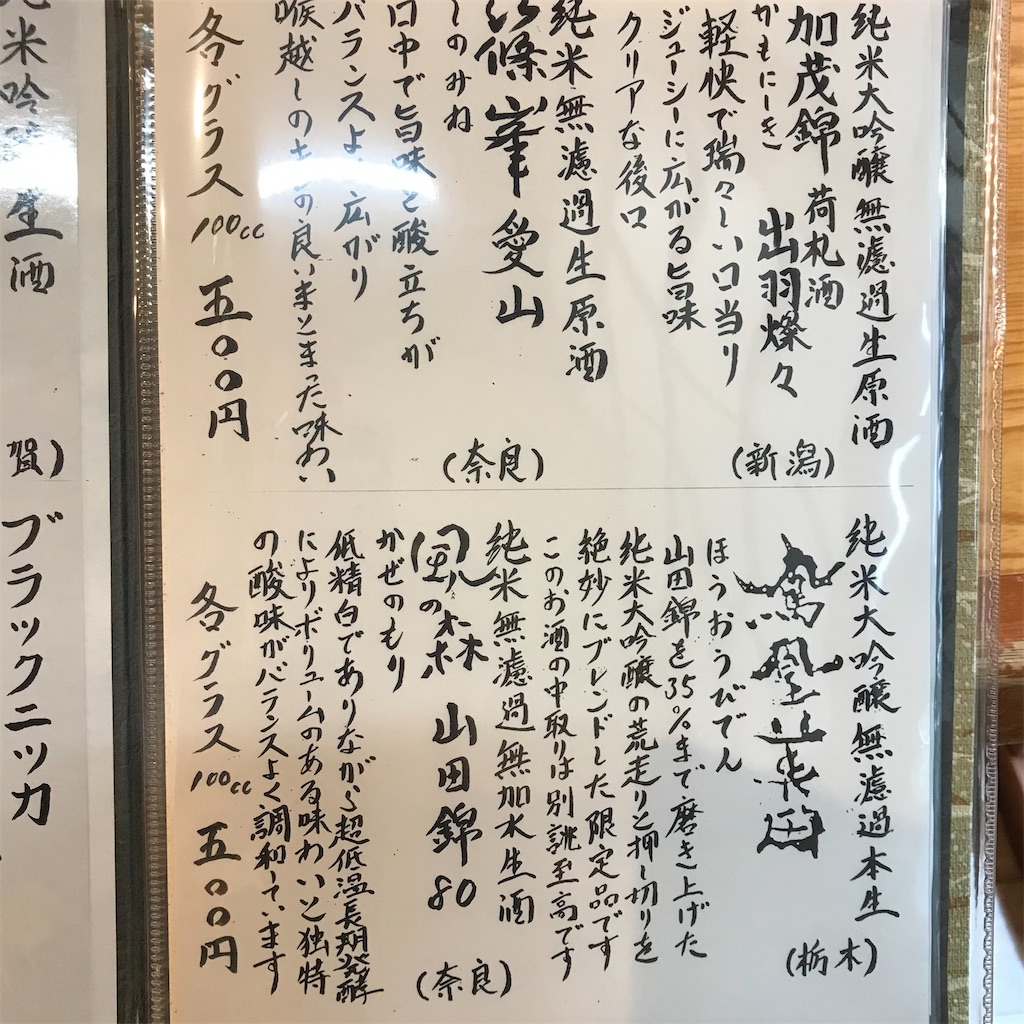 純米大吟醸無濾過生原酒
加茂錦 荷札酒
かもにしき
出羽燦々
軽快で瑞々しい口当り
ジューシーに広がる旨味
クリアな後口
(新潟)
純米無濾過生原酒
篠峯 愛山
しのみね
口中で旨味と酸立ちが
バランスよく広がり
喉越しのキレの良いまとまった味わい
(奈良)
各グラス
100cc
五〇〇円
純米大吟醸無濾過本生
鳳凰美田
ほうおうびでん
山田錦を35%まで磨き上げた
純米大吟醸の荒走りと押し切りを
絶妙にブレンドした限定品です
このお酒の中取りは別誂至高です
(栃木)
純米無濾過無加水生酒
風の森 山田錦 80
かぜのもり
低精白でありながら超低温長期発酵
によりボリュームのある味わいと独特
の酸味がバランスよく調和しています
(奈良)
各グラス
100cc
五〇〇円
純米吟醸生酒
賀)
ブラックニッカ